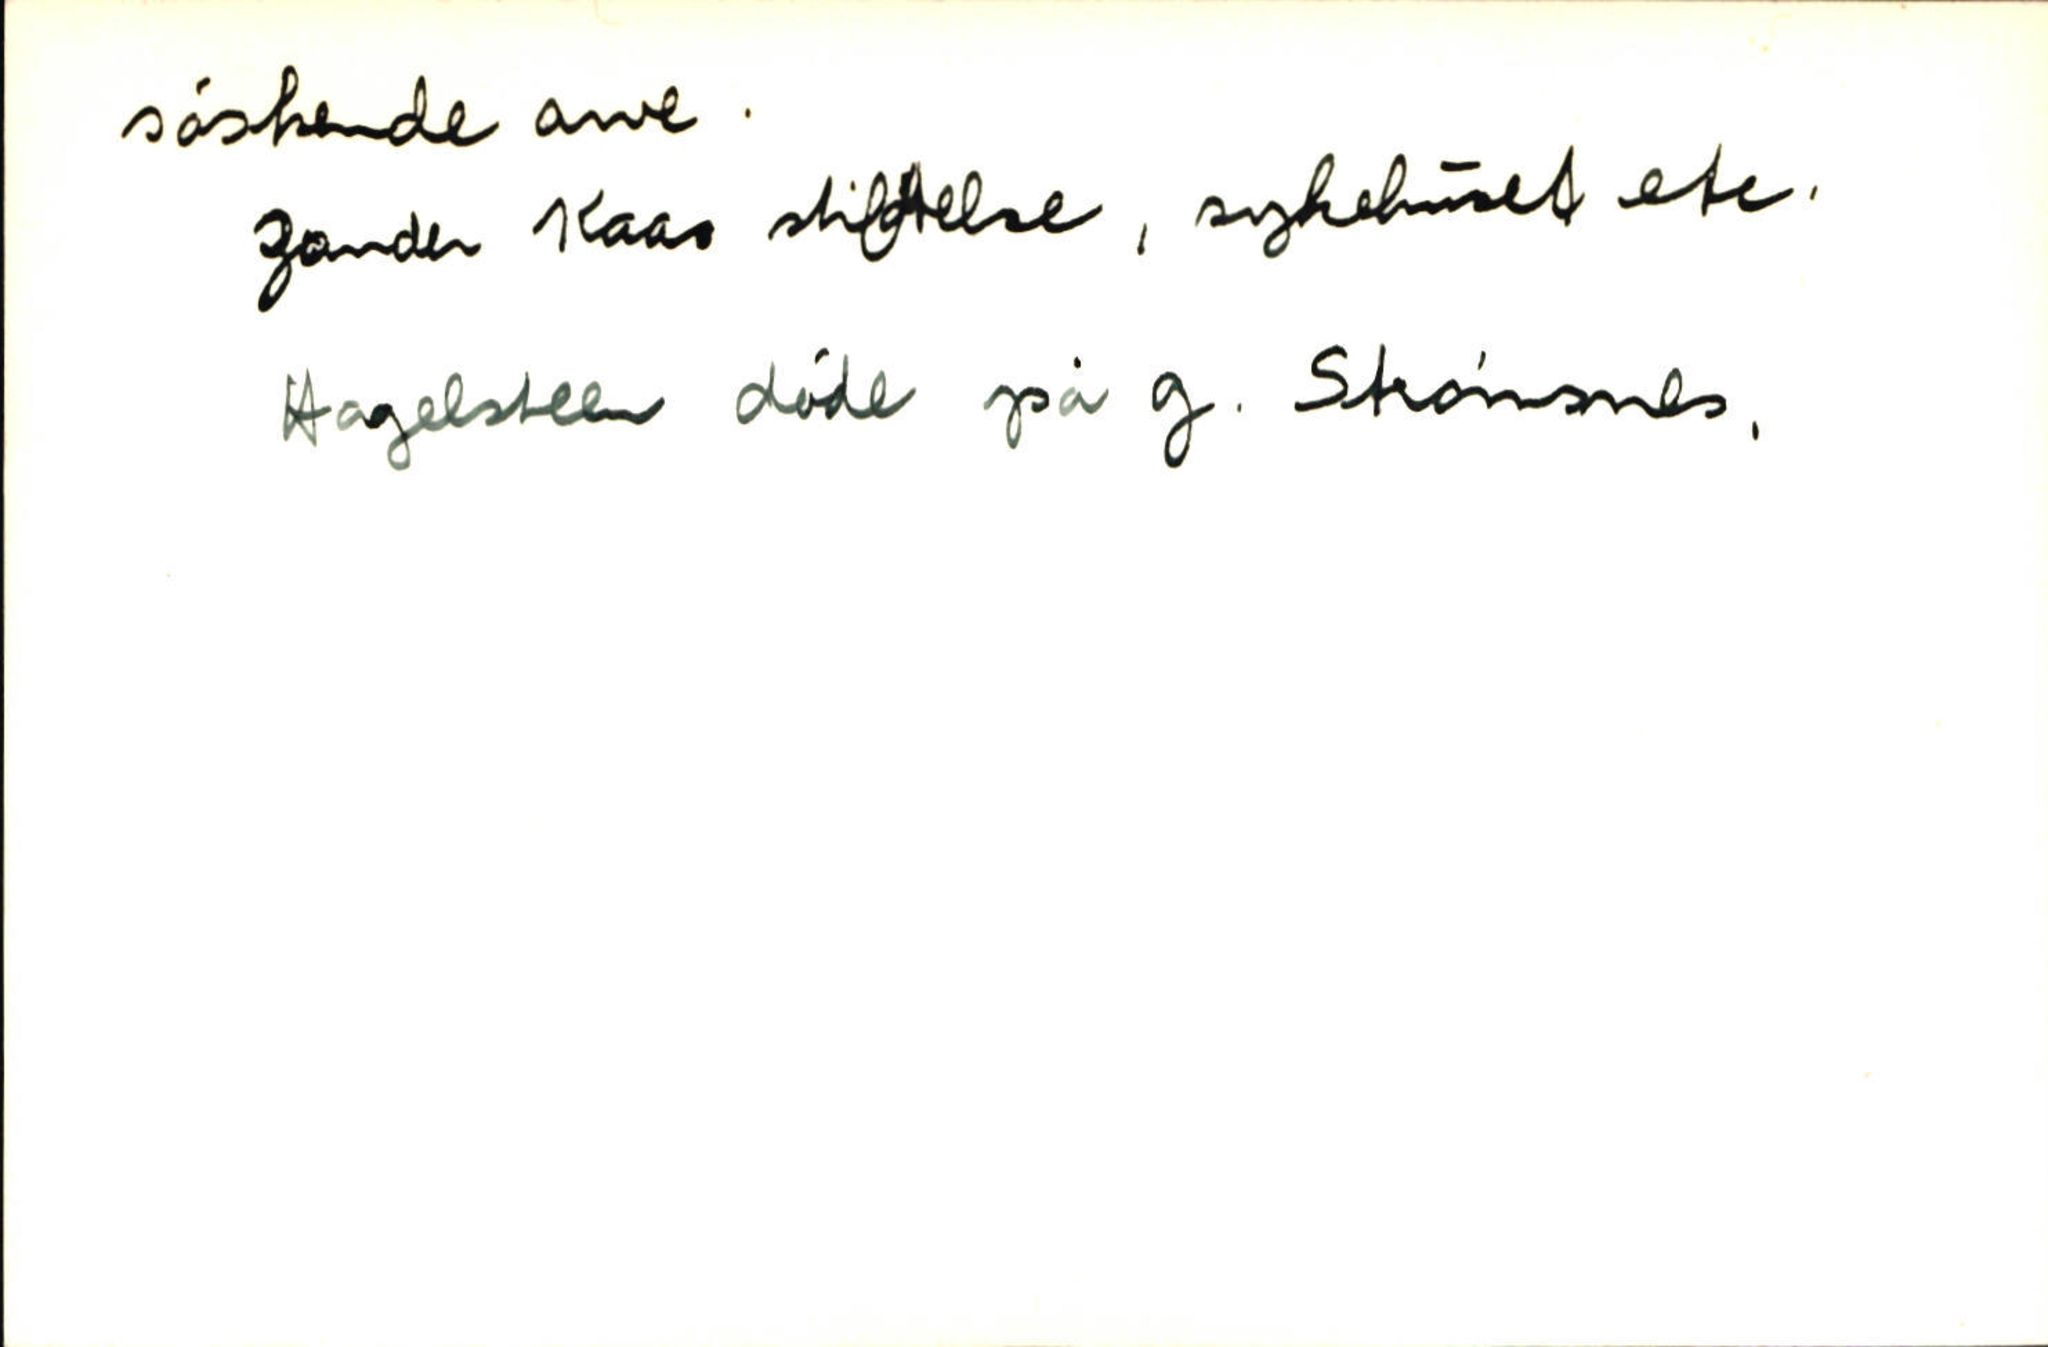 søskende arve.
Zander Kaas stiftelse, sykehuset etc.
Hagelsteen døde på g. Strømsnes.